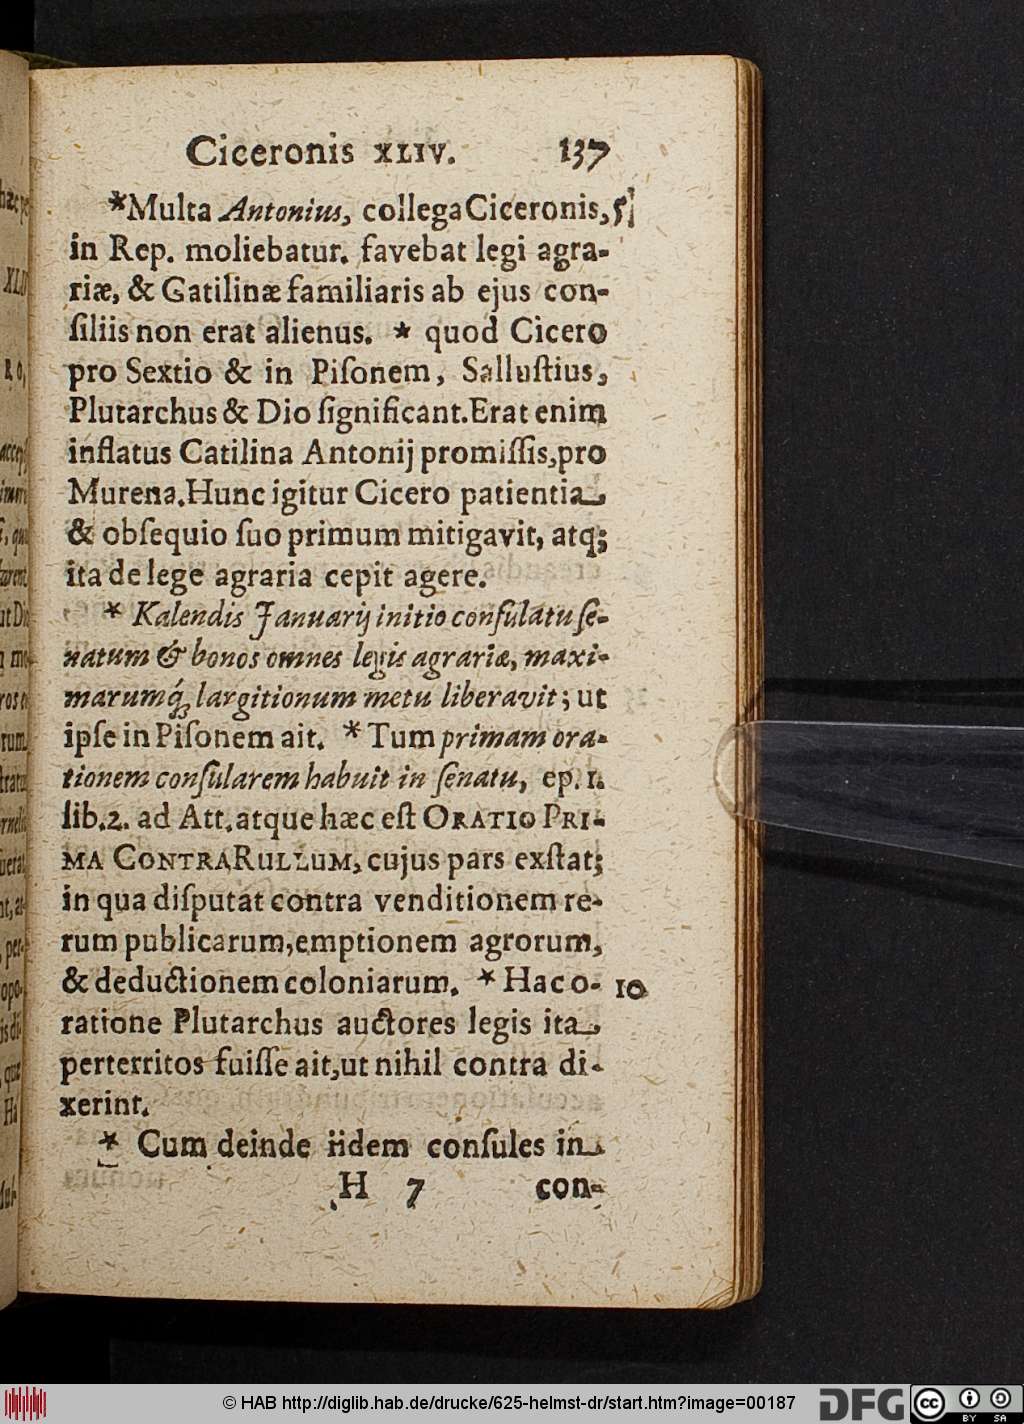 Ciceronis XLIV. 137
*Multa Antonius, collega Ciceronis, 5
in Rep. moliebatur. favebat legi agra-
riæ, & Gatilinæ familiaris ab ejus con-
ſiliis non erat alienus. * quod Cicero
pro Sextio & in Piſonem, Salluſtius,
Plutarchus & Dio ſignificant. Erat enim
inflatus Catilina Antonij promiſſis, pro
Murena. Hunc igitur Cicero patientia,
& obſequio ſuo primum mitigavit, atq;
ita de lege agraria cepit agere.
* Kalendis Januarij initio conſulatu ſe-
natum & bonos omnes legis agrariæ, maxi-
marumq́; largitionum metu liberavit; ut
ipſe in Piſonem ait. * Tum primam ora-
tionem conſularem habuit in ſenatu, ep. 1.
lib. 2. ad Att. atque hæc eſt ORATIO PRI-
MA CONTRA RULLUM, cujus pars exſtat;
in qua diſputat contra venditionem re-
rum publicarum, emptionem agrorum,
& deductionem coloniarum. * Hac o- 10
ratione Plutarchus auctores legis ita
perterritos fuiſſe ait, ut nihil contra di-
xerint.
* Cum deinde iidem conſules in
H 7 con-
© HAB http://diglib.hab.de/drucke/625-helmst-dr/start.htm?image=00187 DFG cc BY SA